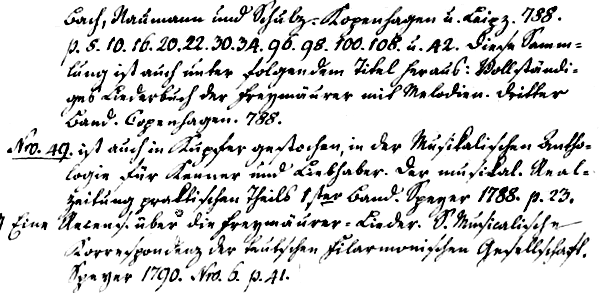 Bach, Naumann und Schulz-Kopenhagen u. Leipz. 788.
p. 5. 10. 16. 20. 22. 30. 34. 96. 98. 100. 108. u. 42. Diese Samm-
lung ist auch unter folgendem Titel heraus: Vollständi-
ges Liederbuch der Freymäurer mit Melodien. Dritter
Band. Copenhagen. 788.
Nro. 49. ist auch in Kupfer gestochen, in der Musikalischen Antho-
logie für Kenner und Liebhaber. Der musikal. Real-
zeitung praktischen Theils 1ster Band. Speyer 1788. p. 23.
Eine Recens. über die Freymäurer-Lieder. S. Musicalische
Korrespondenz der teutschen Filarmonischen Gesellschaft.
Speyer 1790. Nro. 6. p. 41.